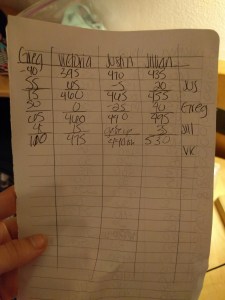 Greg Victoria Justin Jillian
-40 395 470 435
55 65 -5 20 Jus
15 460 465 455
50 0 -25 40 Greg
65 460 440 495
15 35 Jill
100 475 530
Vic